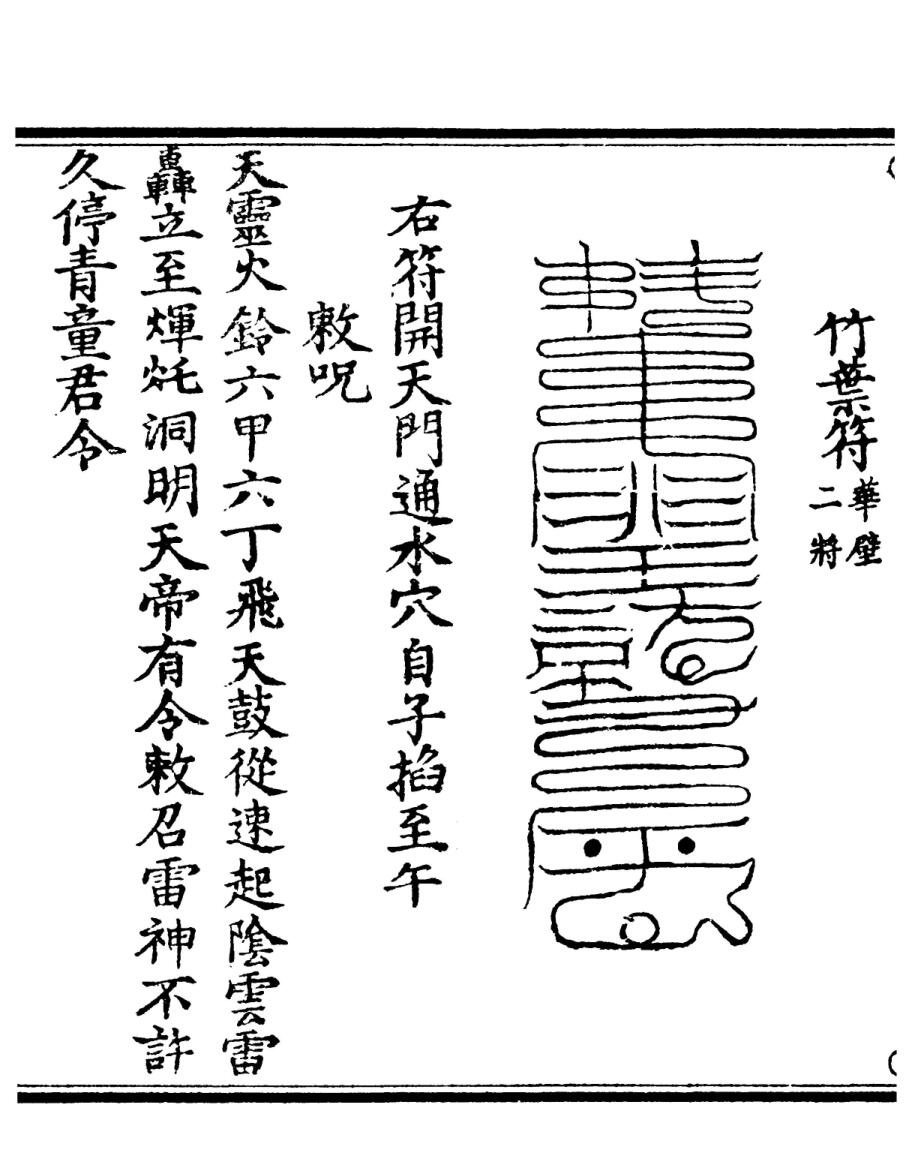 竹葉符華壁二將
右符開天門通水穴自子掐至午
敕呪
天靈火鈴六甲六丁飛天鼓從速起陰雲雷
轟立至煇灹洞明天帝有令敕召雷神不許
久停青童君令